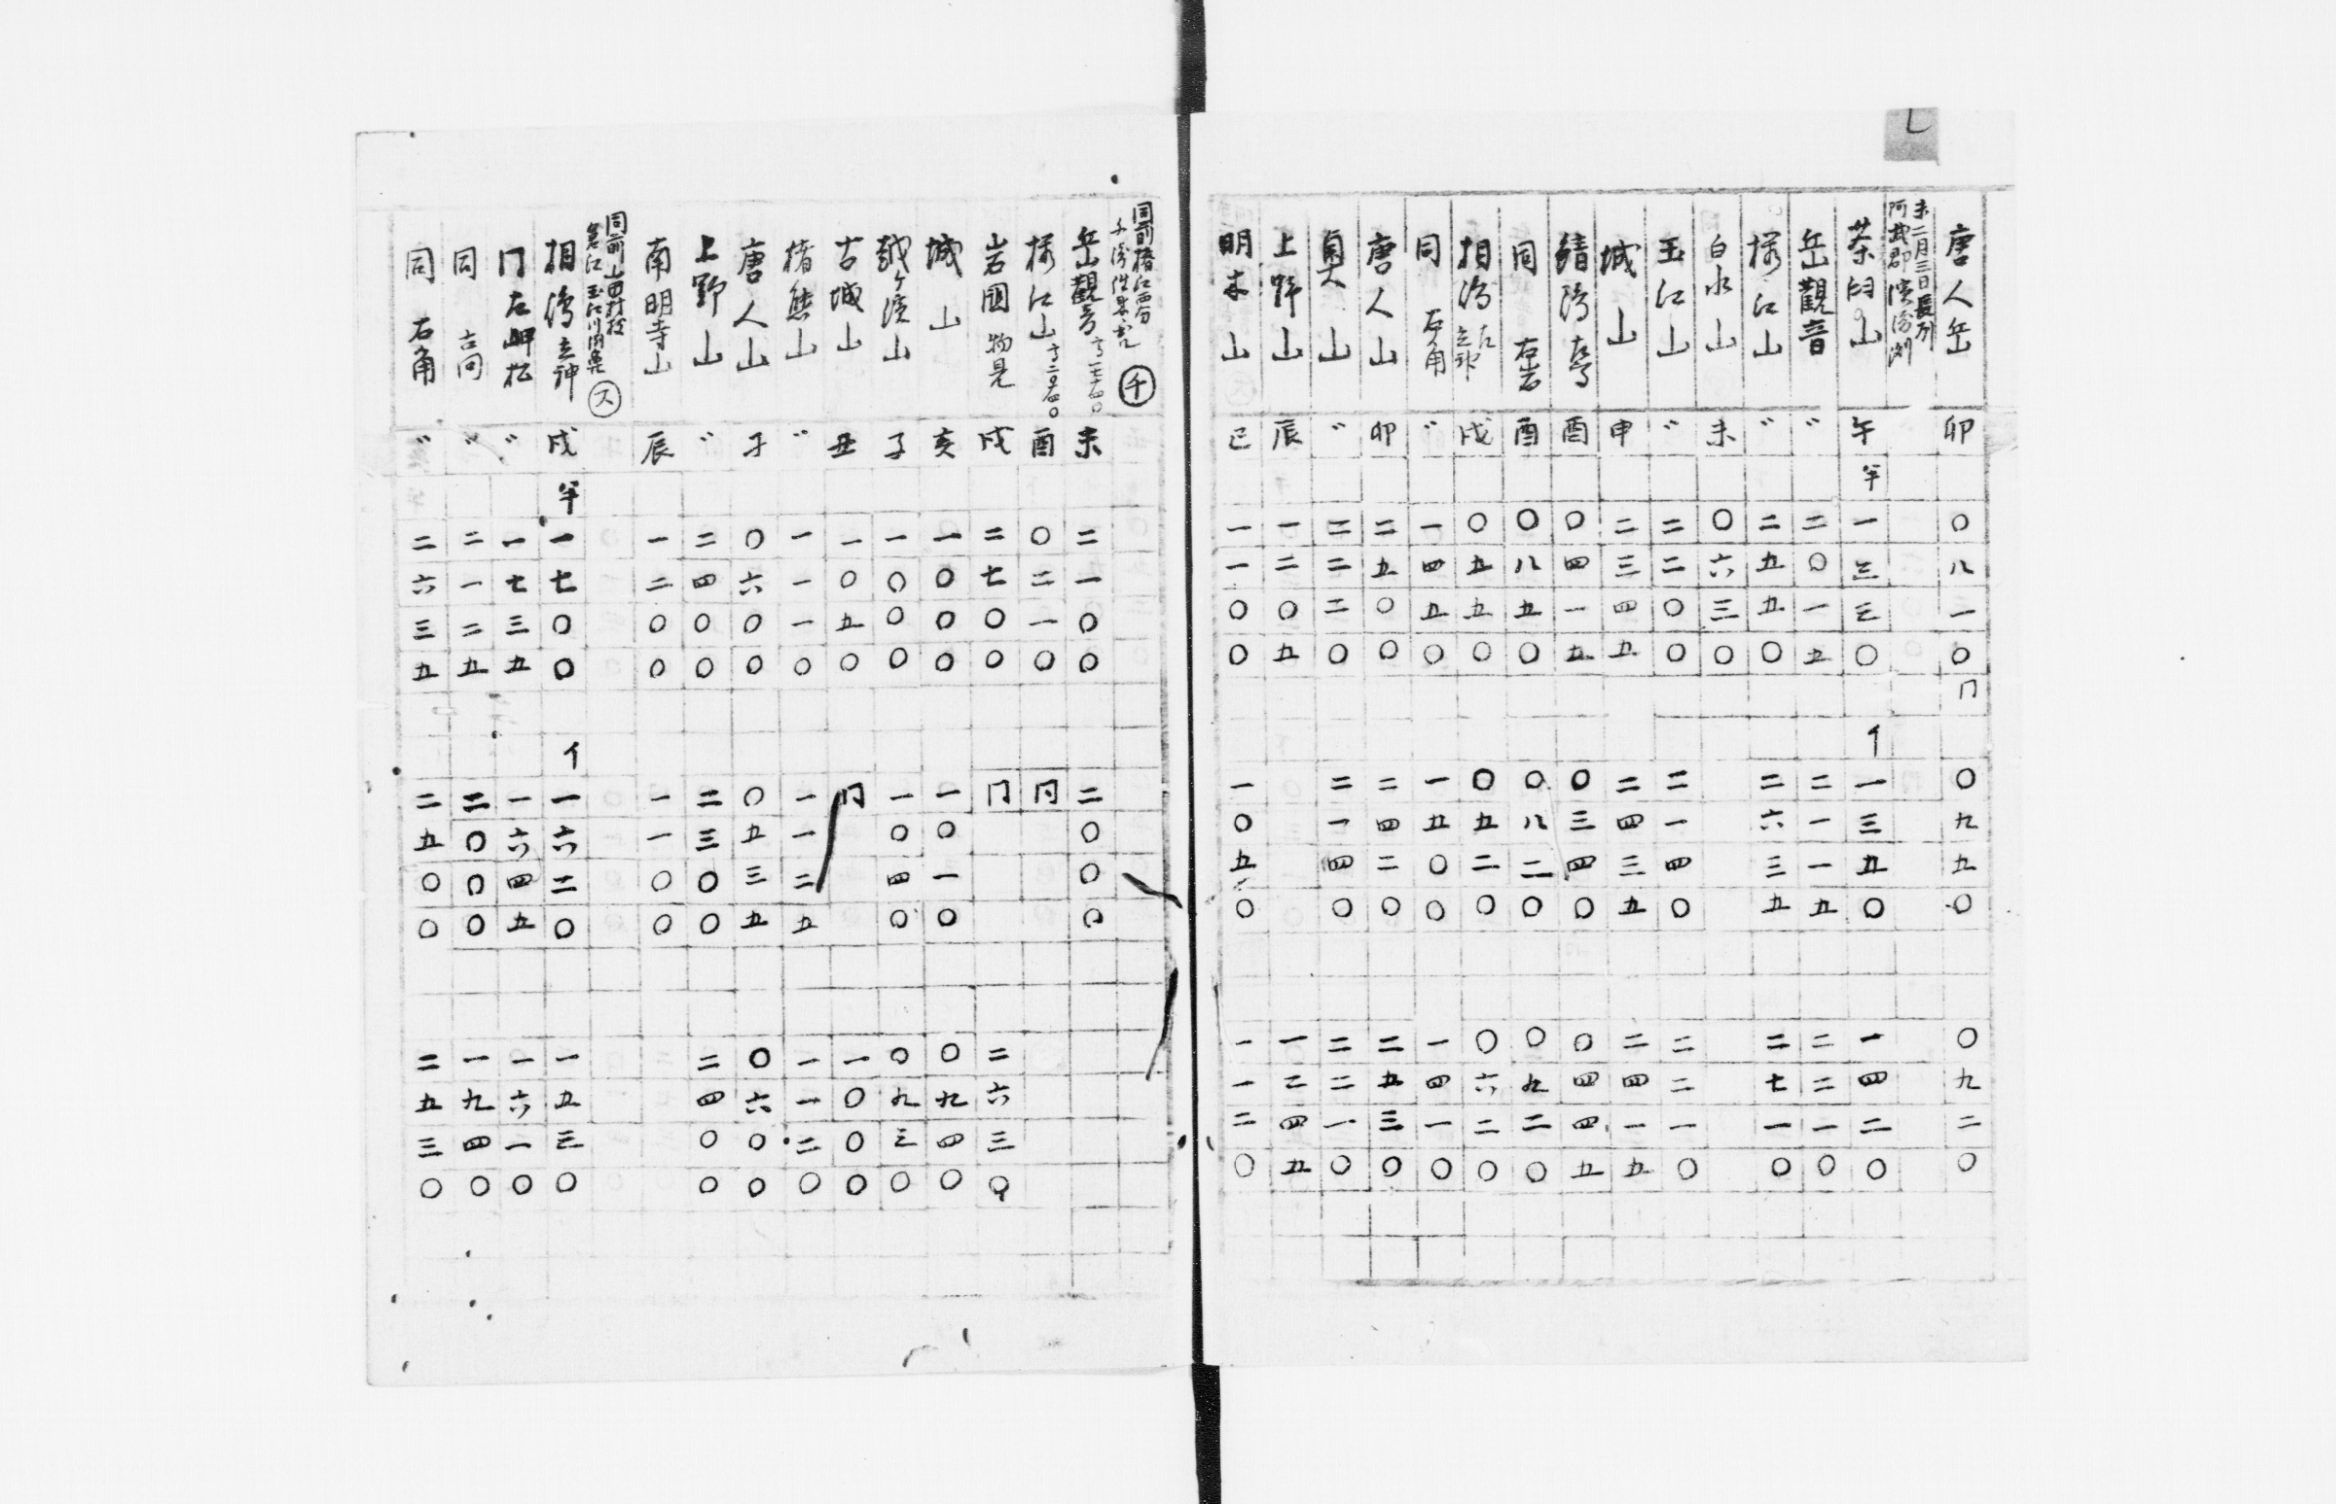 唐人岳 卯 〇八一〇 门 〇九九〇 〇九二〇
未二月三日長州
阿武郡濱
茶臼山 午 半 一三三〇 イ 一三五〇 一四二〇
岳觀音 〃 二〇一五 二一一五 二二一〇
江山 〃 二五五〇 二六三五 二七一〇
白水山 未 〇六三〇
玉江山 〃 二二〇〇 二一四〇 二二一〇
城山 申 二三四五 二四三五 二四一五
酉 〇四一五 〇三四〇 〇四四五
同 右岩 酉 〇八五〇 〇八二〇 〇九二〇
相 戌 〇五五〇 〇五二〇 〇六二〇
同 右角 〃 一四五〇 一五〇〇 一四一〇
唐人山 卯 二五〇〇 二四二〇 二五三〇
奥山 〃 二二二〇 二一四〇 二二一〇
上野山 辰 一二〇五 一二四五
明木山 巳 一一〇〇 一〇五〇 一一二〇
同前椿江西分
千
岳觀音 未 二一〇〇 二〇〇〇
江山 酉 〇二一〇 同
岩國 物見 戌 二七〇〇 门 二六三〇
城山 亥 一〇〇〇 一〇一〇 〇九四〇
越ヶ濱山 子 一〇〇〇 一〇四〇 〇九三〇
古城山 丑 一〇五〇 门 一〇〇〇
椿熊山 〃 一一一〇 一一二五 一一二〇
唐人山 子 〇六〇〇 〇五三五 〇六〇〇
上野山 〃 二四〇〇 二三〇〇 二四〇〇
南明寺山 辰 一二〇〇 一一〇〇
同前山田村枝
倉江玉江川
相 立神 戌 半 一七〇〇 イ 一六二〇 一五三〇
门 左岬松 〃 一七三五 一六四五 一六一〇
同 〃 二一二五 二〇〇〇 一九四〇
同 右角 〃 二六三五 二五〇〇 二五三〇